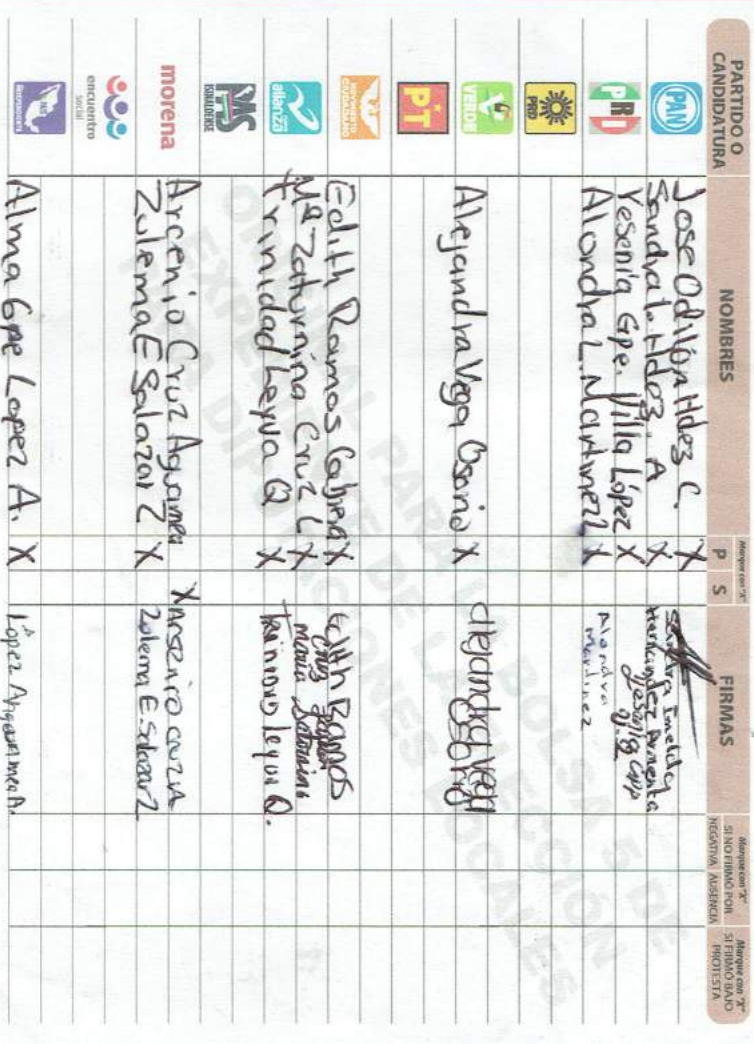 PARTIDO O CANDIDATURA NOMBRES Marque con "X" P S FIRMAS Marque con "X" SI NO FIRMÓ POR NEGATIVA AUSENCIA Marque con "X" SI FIRMÓ BAJO PROTESTA
PAN Jose Odilón Hdez C. X
Sandra I. Hdez. A X Sandra Imelda Hernandez Armenta
PRI Yesenia Gpe. Villa López X Yesenia Gpp
Alondra L. Martinez X Alondra Martinez
PRD
VERDE Alejandra Vega Osorio X Alejandra Vega Osorio
PT
MOVIMIENTO CIUDADANO Edith Ramos Cabrera X Edith Ramos
Ma Zaturnina Cruz L X Cruz Maria Saturnina
alianza Trinidad Leyva Q X Trinidad Leyva Q.
PAS SINALOENSE
morena Arcenio Cruz Aguamea X Arsenio Cruz A
Zulema E Salazar Z X Zulema E. Salazar Z
encuentro social
INDEPENDIENTE Alma Gpe Lopez A. X López A.
ORIGINAL PARA LA BOLSA 5 DE
EXPEDIENTE DE LA ELECCIÓN
DE DIPUTACIONES LOCALES